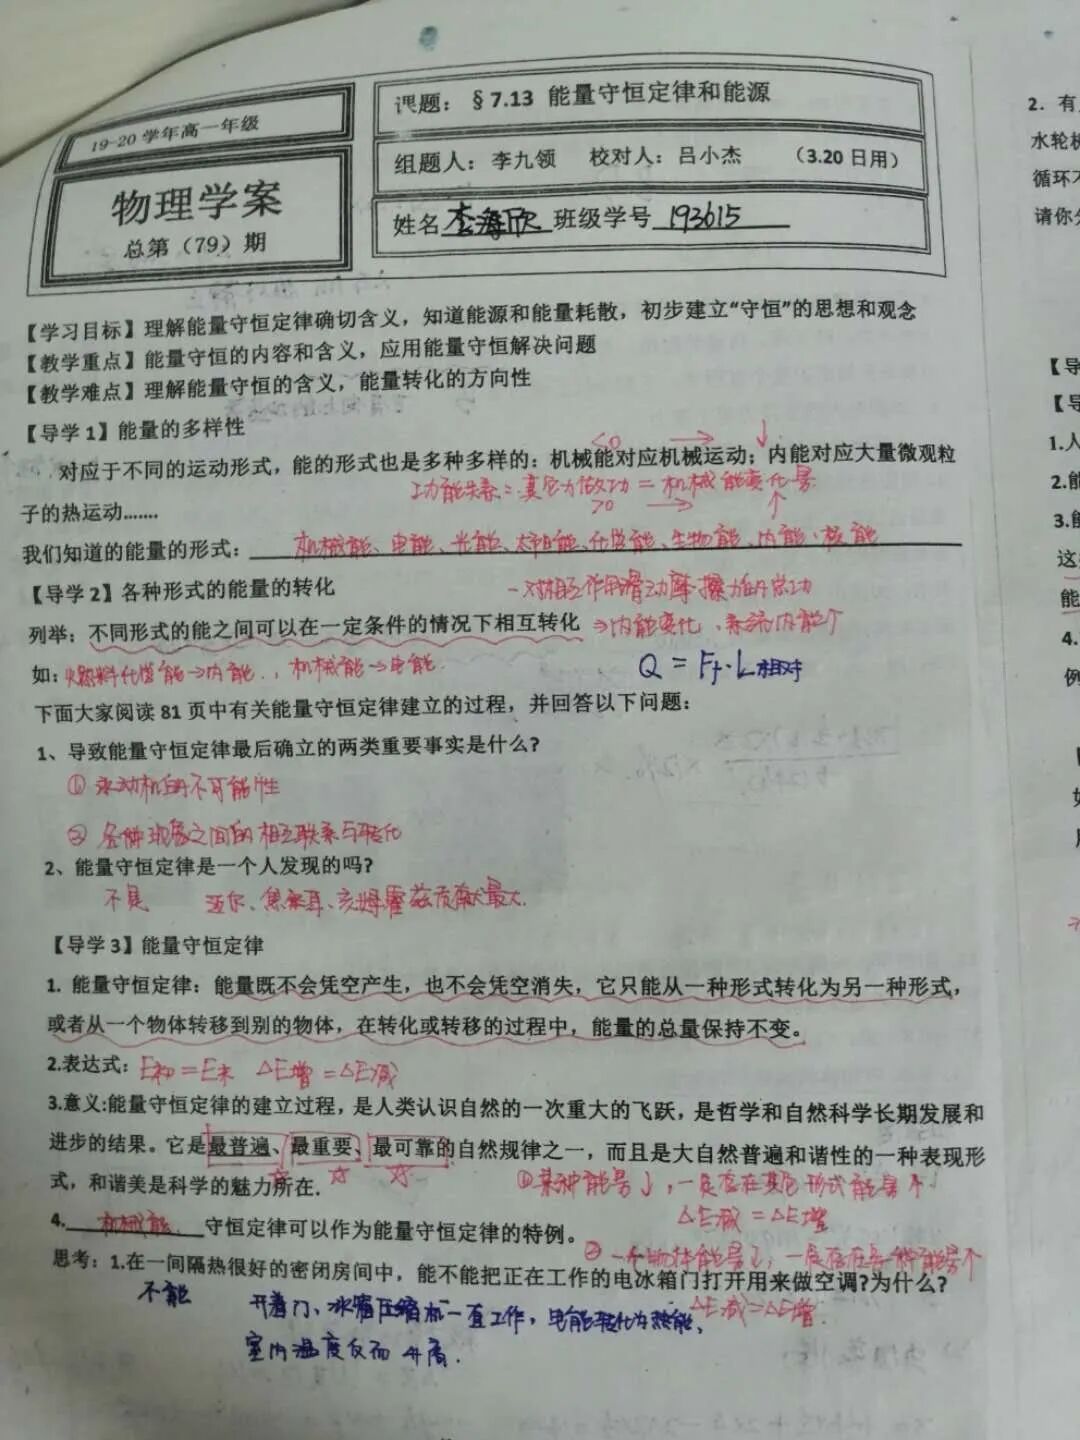 19-20 学年高一年级
物理学案
总第（79）期
课题：§7.13 能量守恒定律和能源
组题人：李九领 校对人：吕小杰 （3.20 日用）
姓名李海欣 班级学号 193615
【学习目标】理解能量守恒定律确切含义，知道能源和能量耗散，初步建立“守恒”的思想和观念
【教学重点】能量守恒的内容和含义，应用能量守恒解决问题
【教学难点】理解能量守恒的含义，能量转化的方向性
【导学1】能量的多样性
<0 → ↓
对应于不同的运动形式，能的形式也是多种多样的：机械能对应机械运动；内能对应大量微观粒
功能关系：其它力做功 = 机械能变化量
子的热运动.......
>0 → ↑
我们知道的能量的形式：机械能、电能、光能、太阳能、化学能、生物能、内能、核能
【导学2】各种形式的能量的转化
一对相互作用滑动摩擦力的总功
列举：不同形式的能之间可以在一定条件的情况下相互转化
⇒内能变化、系统内能个
如：火燃料化学能→内能，机械能→电能.
Q = Ff·L相对
下面大家阅读 81 页中有关能量守恒定律建立的过程，并回答以下问题：
1、导致能量守恒定律最后确立的两类重要事实是什么？
① 永动机的不可能性
② 各种现象之间的相互联系与转化
2、能量守恒定律是一个人发现的吗？
不是 迈尔、焦耳、亥姆霍兹贡献最大.
【导学3】能量守恒定律
1. 能量守恒定律：能量既不会凭空产生，也不会凭空消失，它只能从一种形式转化为另一种形式，
或者从一个物体转移到别的物体，在转化或转移的过程中，能量的总量保持不变。
2.表达式：E初 = E末 △E增 = △E减
3.意义:能量守恒定律的建立过程，是人类认识自然的一次重大的飞跃，是哲学和自然科学长期发展和
进步的结果。它是最普遍、最重要、最可靠的自然规律之一，而且是大自然普遍和谐性的一种表现形
式，和谐美是科学的魅力所在.
① 某种能量↓，一定存在其它形式能量↑
△E减 = △E增
4. 机械能 守恒定律可以作为能量守恒定律的特例。
② 一个物体能量↓，一定存在
思考：1.在一间隔热很好的密闭房间中，能不能把正在工作的电冰箱门打开用来做空调?为什么？
△E减=△E增.
不能 开着门、冰箱压缩机一直工作，电能转化为热能，
室内温度反而升高.
2. 有
水轮机
循环不
请你分
【导
【导
1.人
2.能
3.能
这
能
4.
例